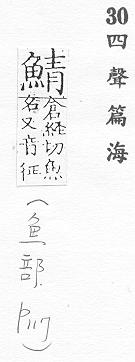 30四聲篇海
鯖倉經切魚
名又音征
(魚部 P117